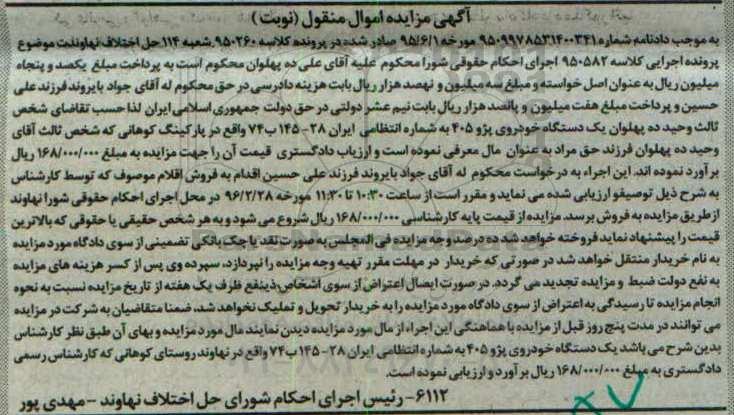 آگهی مزایده اموال منقول (نوبت )
به موجب دادنامه شماره ۹۵۰۹۹۷۸۵۳۱۴۰۰۳۴۱ مورخه ۹۵/۶/۱ صادر شده در پرونده کلاسه ۹۵۰۲۶۰ شعبه ۱۱۴ حل اختلاف نهاوندت موضوع
پرونده اجرایی کلاسه ۹۵۰۵۸۲ اجرای احکام حقوقی شورا محکوم علیه آقای علی ده پهلوان محکوم است به پرداخت مبلغ یکصد و پنجاه
میلیون ریال به عنوان اصل خواسته و مبلغ سه میلیون و نهصد هزار ریال بابت هزینه دادرسی در حق محکوم له آقای جواد بایروند فرزند علی
حسین و پرداخت مبلغ هفت میلیون و پانصد هزار ریال بابت نیم عشر دولتی در حق دولت جمهوری اسلامی ایران لذا حسب تقاضای شخص
ثالث وحید ده پهلوان یک دستگاه خودروی پژو ۴۰۵ به شماره انتظامی ایران ۲۸- ۱۴۵ ب۷۴ واقع در پارکینگ کوهانی که شخص ثالث آقای
وحید ده پهلوان فرزند حق مراد به عنوان مال معرفی نموده است و ارزیاب دادگستری قیمت آن را جهت مزایده به مبلغ ۱۶۸/۰۰۰/۰۰۰ ریال
برآورد نموده اند. این اجراء به درخواست محکوم له آقای جواد بایروند فرزند علی حسین اقدام به فروش اقلام موصوف که توسط کارشناس
به شرح ذیل توصیفو ارزیابی شده می نماید و مقرر است از ساعت ۱۰:۳۰ تا ۱۱:۳۰ مورخه ۹۶/۲/۲۸ در محل اجرای احکام حقوقی شورا نهاوند
از طریق مزایده به فروش برسد. مزایده از قیمت پایه کارشناسی ۱۶۸/۰۰۰/۰۰۰ ریال شروع می شود و به هر شخص حقیقی یا حقوقی که بالاترین
قیمت را پیشنهاد نماید فروخته خواهد شد ده درصد وجه مزایده فی المجلس به صورت نقد یا چک بانکی تضمینی از سوی دادگاه مورد مزایده
به نام خریدار منتقل خواهد شد در صورتی که خریدار در مهلت مقرر تهیه وجه مزایده را نپردازد، سپرده وی پس از کسر هزینه های مزایده
به نفع دولت ضبط و مزایده تجدید می گردد. در صورت ایصال اعتراض از سوی اشخاص ذینفع ظرف یک هفته از تاریخ مزایده نسبت به نحوه
انجام مزایده تا رسیدگی به اعتراض از سوی دادگاه مورد مزایده را به خریدار تحویل و تملیک نخواهد شد، ضمنا متقاضیان به شرکت در مزایده
می توانند در مدت پنج روز قبل از مزایده با هماهنگی این اجراء از مال مورد مزایده دیدن نمایند مال مورد مزایده و بهای آن طبق نظر کارشناس
بدین شرح می باشد یک دستگاه خودروی پژو ۴۰۵ به شماره انتظامی ایران ۲۸- ۱۴۵ ب۷۴ واقع در نهاوند روستای کوهانی که کارشناس رسمی
دادگستری به مبلغ ۱۶۸/۰۰۰/۰۰۰ ریال برآورد و ارزیابی نموده است.
۶۱۱۲- رئیس اجرای احکام شورای حل اختلاف نهاوند - مهدی پور